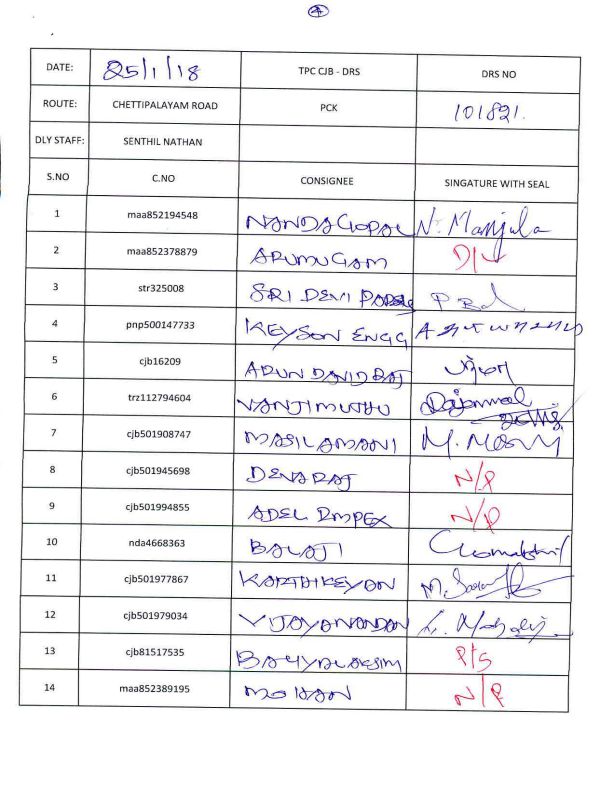 4
DATE: 25/1/18 TPC CJB - DRS DRS NO
ROUTE: CHETTIPALAYAM ROAD PCK 101821.
DLY STAFF: SENTHIL NATHAN
S.NO C.NO CONSIGNEE SINGATURE WITH SEAL
1 maa852194548 NANDAGOPAL N. Manjula
2 maa852378879 ARUMUGAM
3 str325008 SRI DEVI
4 pnp500147733 KEYSON ENGG
5 cjb16209 ARUN DAVID RAJ
6 trz112794604 NANJIMUTHU
7 cjb501908747 MASILAMANI M. Mary
8 cjb501945698 DEVARAJ N/P
9 cjb501994855 ADEL IMPEX N/P
10 nda4668363 BALAJI
11 cjb501977867 KARTHIKEYAN
12 cjb501979034 VIJAYANANDAN
13 cjb81517535 P/S
14 maa852389195 MOHAN N/P